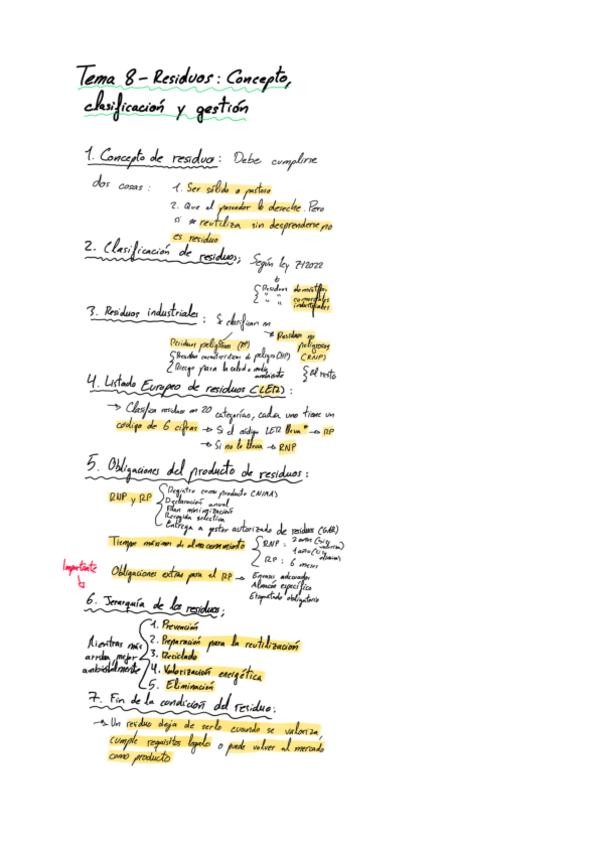 Tema 8 - Residuos: Concepto,
clasificación y gestión
1. Concepto de residuo: Debe cumplirse
dos cosas: 1. Ser sólido o pastoso
2. Que el poseedor lo deseche. Pero
si se reutiliza sin desprenderse no
es residuo
2. Clasificación de residuos: Según ley 7/2022
Residuos domésticos
" " comerciales
industriales
3. Residuos industriales: Se clasifican en
Residuos peligrosos (RP)
Residuos no
peligrosos
(RNP)
Riesgo para la salud o medio
ambiente
El resto
4. Listado Europeo de residuos (LER):
→ Clasifica residuos en 20 categorías, cada uno tiene un
código de 6 cifras → Si el código LER lleva * → RP
→ Si no lo lleva → RNP
5. Obligaciones del producto de residuos:
RNP y RP
Registro como producto (NIMA)
Declaración anual
Plan minimización
Recogida selectiva
Entrega a gestor autorizado de residuos (GAR)
Tiempo máximo de almacenamiento
RNP: 2 años (si se valoriza)
1 año (si se elimina)
RP: 6 meses
Importante
Obligaciones extras para el RP → Envases adecuados
Almacén específico
Etiquetado obligatorio
6. Jerarquía de los residuos:
Mientras más
arriba mejor
ambientalmente
1. Prevención
2. Preparación para la reutilización
3. Reciclado
4. Valorización energética
5. Eliminación
7. Fin de la condición del residuo:
→ Un residuo deja de serlo cuando se valoriza,
cumple requisitos legales o puede volver al mercado
como producto